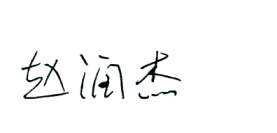 赵润杰